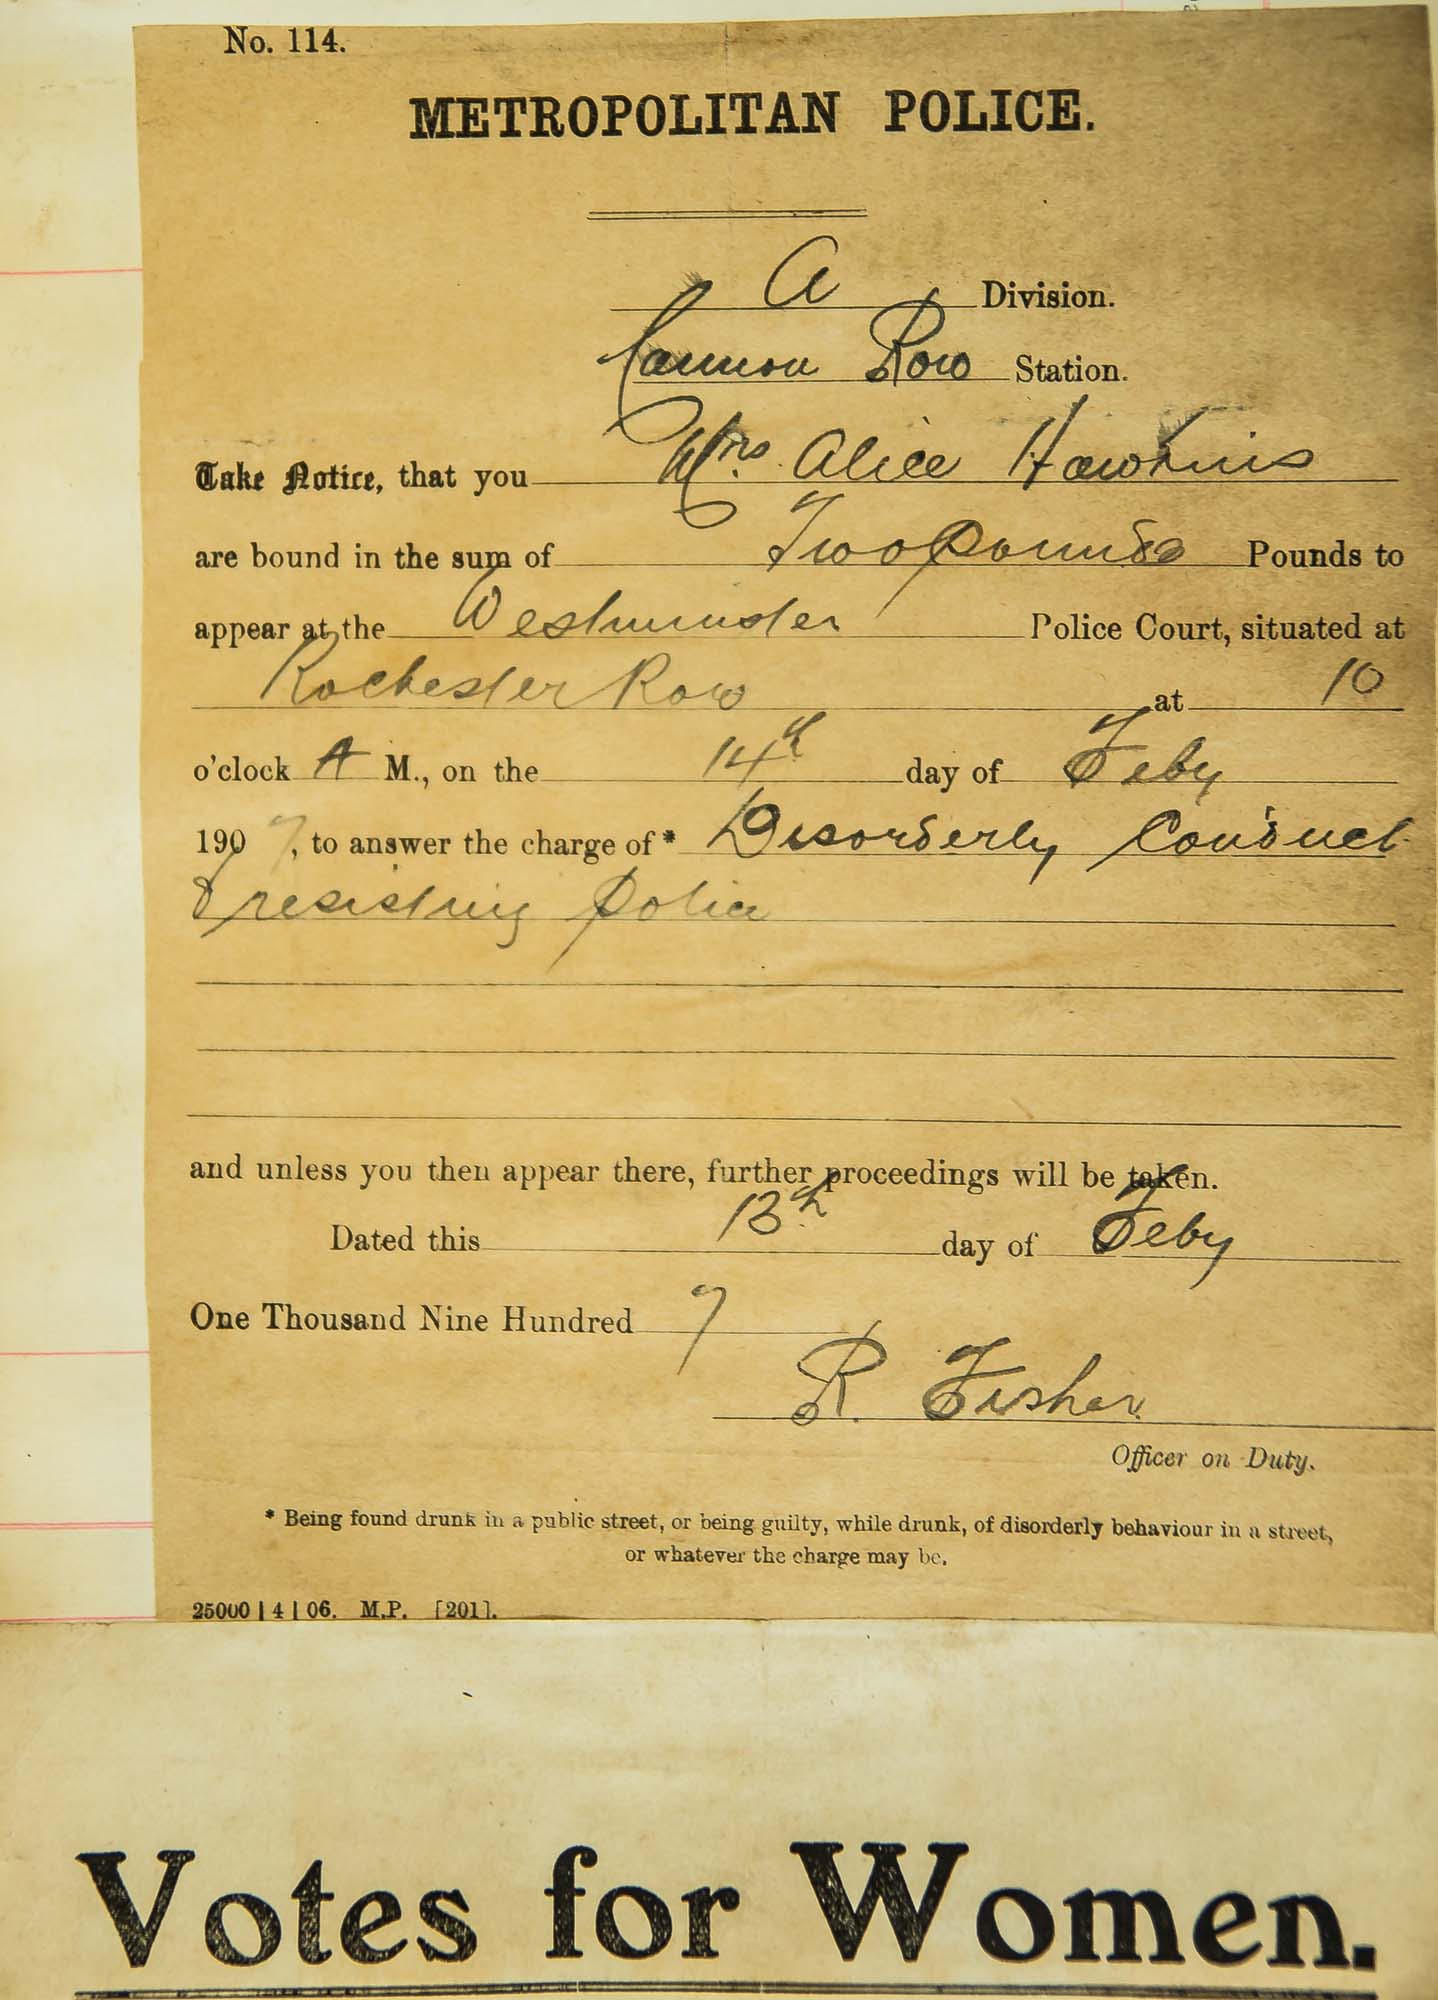 No. 114.
METROPOLITAN POLICE.
A Division.
Cannon Row Station.
Take Notice, that you Mrs. Alice Hawkins
are bound in the sum of Two Pounds Pounds to
appear at the Westminster Police Court, situated at
Rochester Row at 10
o'clock A M., on the 14th day of Feby
1907, to answer the charge of* Disorderly Conduct
& resisting police
and unless you then appear there, further proceedings will be taken.
Dated this 13th day of Feby
One Thousand Nine Hundred 7
R. Fisher
Officer on Duty.
* Being found drunk in a public street, or being guilty, while drunk, of disorderly behaviour in a street,
or whatever the charge may be.
25000 | 4 | 06. M.P. [201].
Votes for Women.